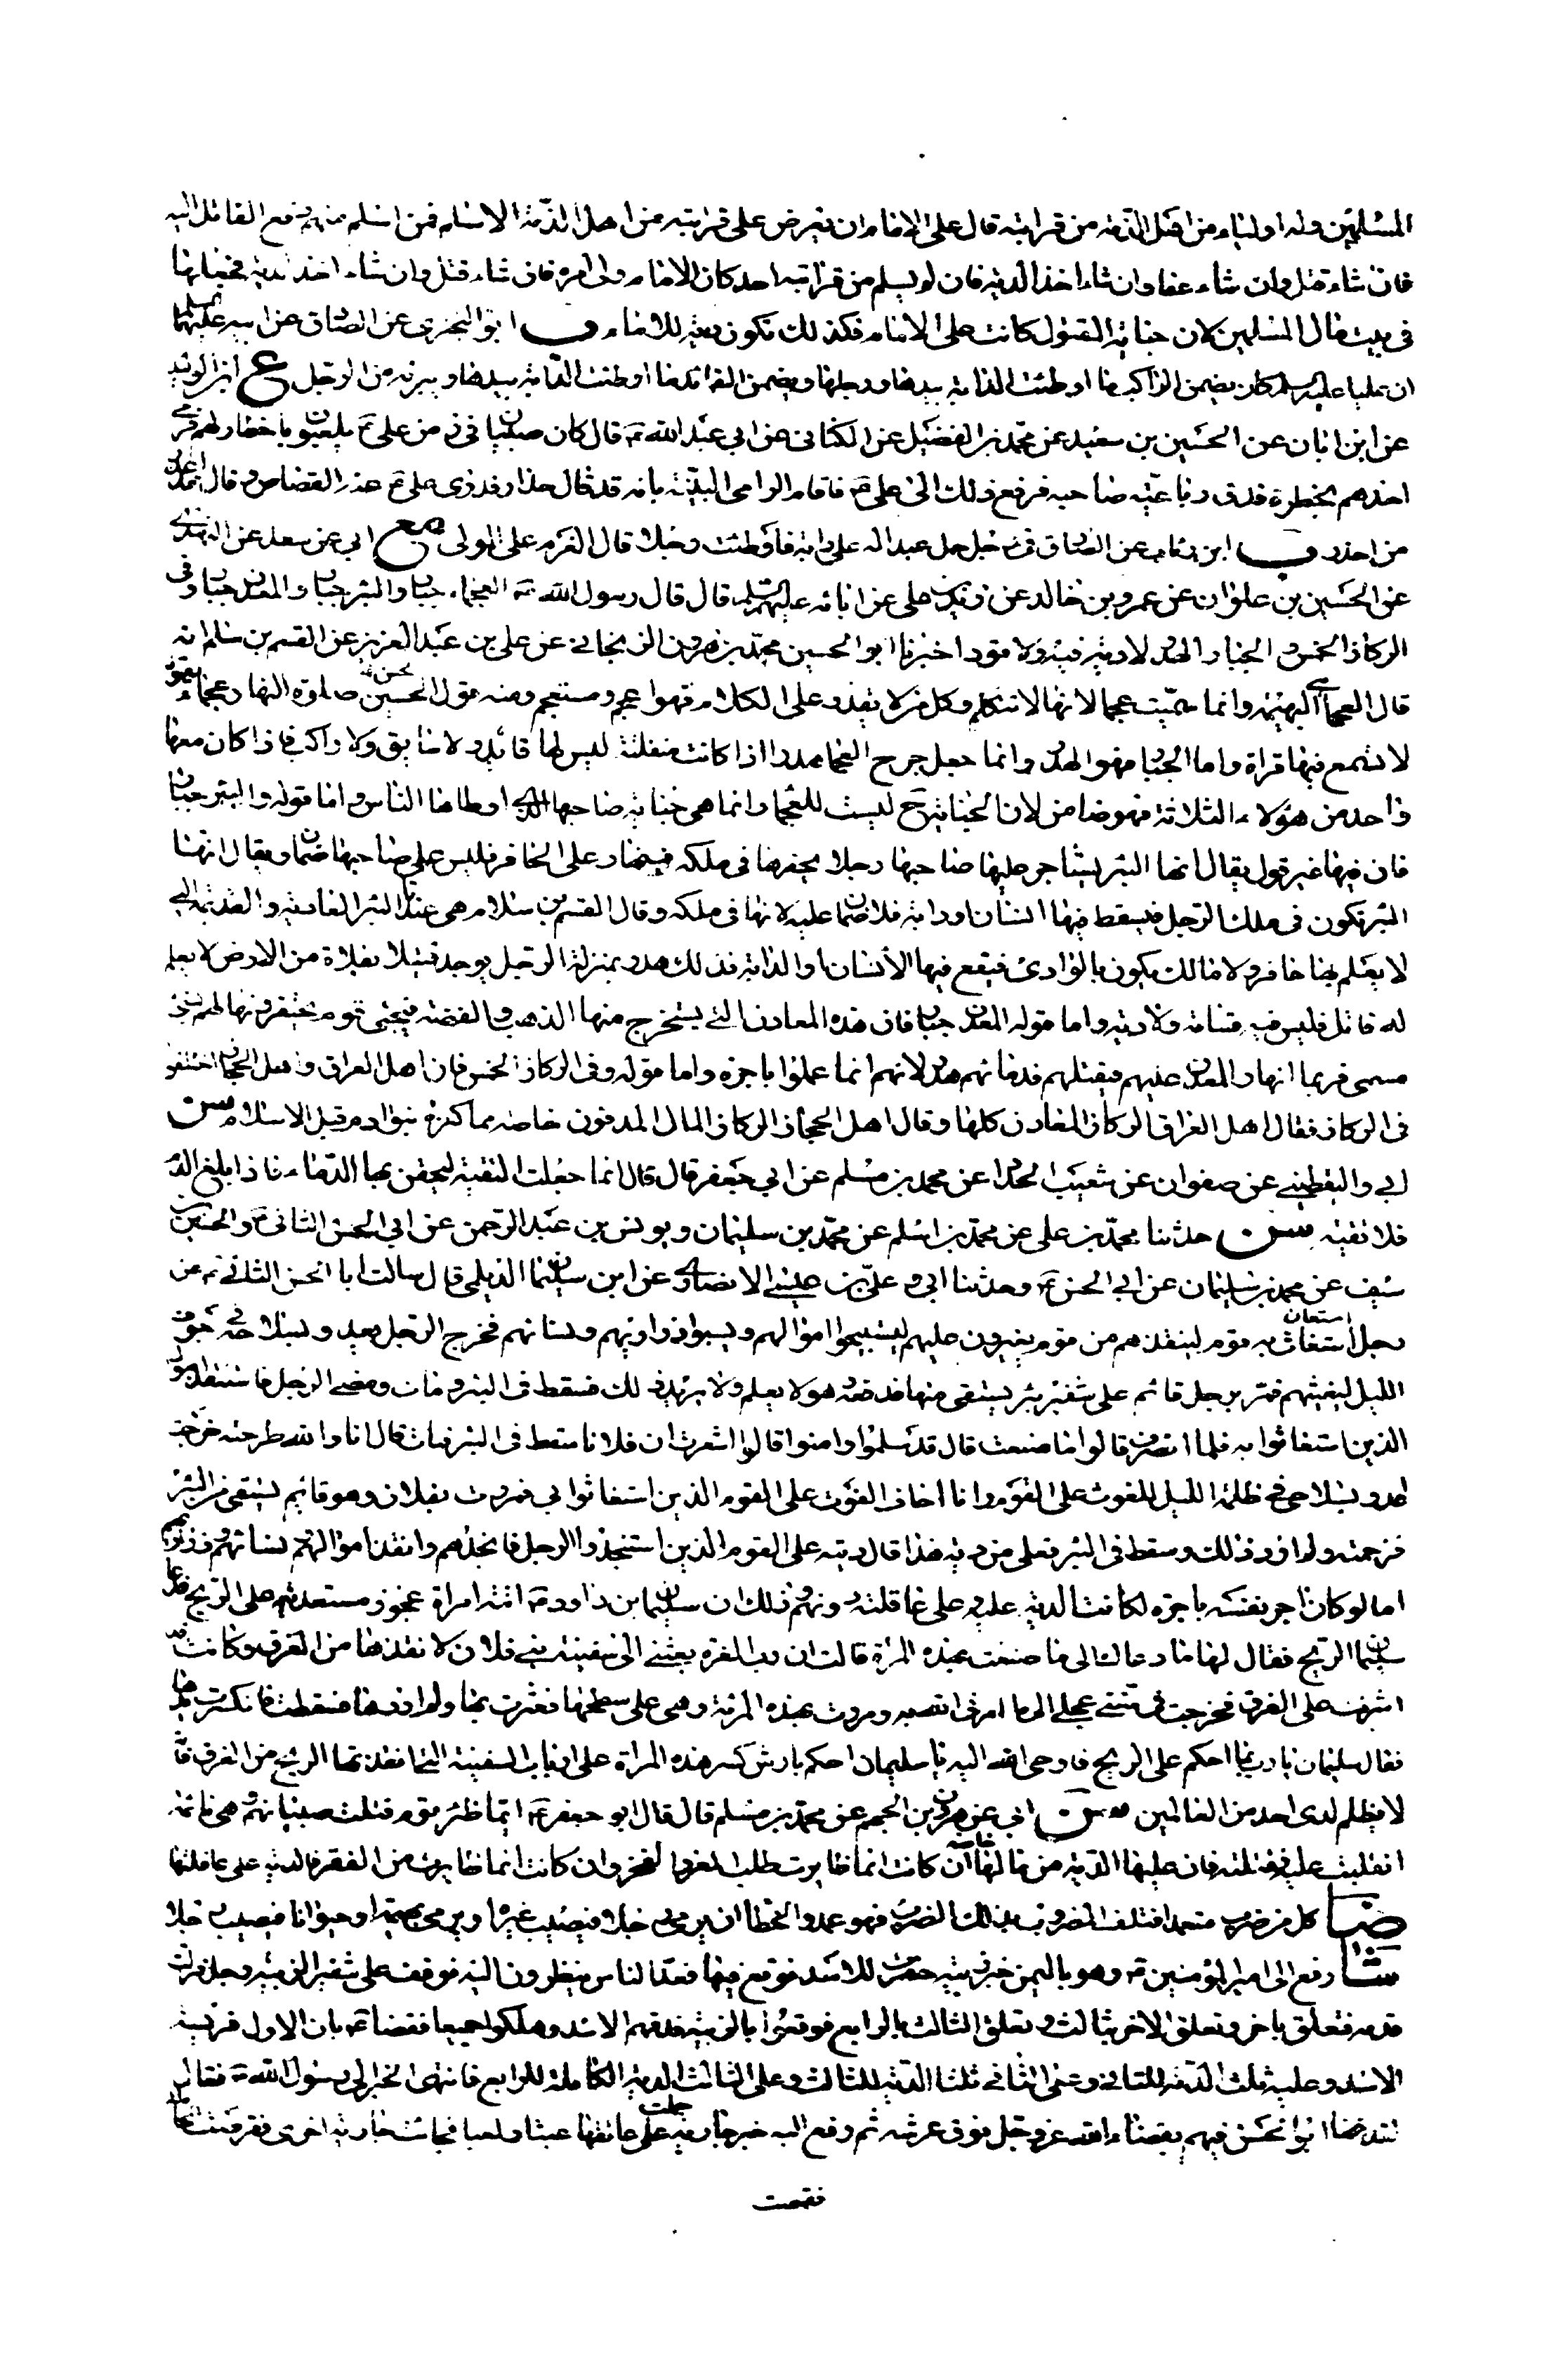 المسلمين وله اولياء من اهل الذمة من قرابته قال على الامام ان يعرض على قرابته من اهل الذمة الاسلام فمن اسلم منهم دفع القاتل اليه
فان شاء قتل وان شاء عفا وان شاء اخذ الدية فان لم يسلم من قرابته احد كان الامام ولى امره فان شاء قتل وان شاء اخذ الدية فجعلها
فى بيت مال المسلمين لان جناية المقتول كانت على الامام فكذلك تكون ديته للامام ب ابو البخترى عن الصادق عن ابيه عليهما السلم
ان عليا عليه السلم كان يضمن الراكب ما اوطئت الدابة بيدها ورجلها ويضمن القائد ما اوطئت الدابة بيدها ويبرئه من الرجل ع ابن الوليد
عن ابن ابان عن الحسين بن سعيد عن محمد بن الفضيل عن الكنانى عن ابي عبد الله ع قال كان صبيان فى زمن على ع يلعبون باخطار لهم فرمى
احدهم بخطره فدق رباعية صاحبه فرفع ذلك الى على ع فاقام الرامى البينة بانه قد قال حذار فدرى على ع عنه القصاص وقال قد اعذر
من احذر ب ابن رئاب عن الصادق فى رجل حمل عبدا له على دابة فاوطئت رجلا قال الغرم على المولى مع ابي عن سعد عن النهدى
عن الحسين بن علوان عن عمرو بن خالد عن زيد بن على عن ابائه عليهم السلم قال قال رسول الله ص العجماء جبار والبئر جبار والمعدن جبار وفى
الركاز الخمس والجبار الهدر لا دية فيه ولا قود اخبرنا ابو الحسين محمد بن هرون الزنجانى عن على بن عبد العزيز عن القسم بن سلام انه
قال العجماء هي البهيمة وانما سميت عجما لانها لا تتكلم وكل من لا يقدر على الكلام فهو اعجم ومستعجم ومنه قول الحسن صلوة النهار عجماء يقول
لا تسمع فيها قراة واما الجبار فهو الهدر وانما جعل جرح العجماء هدرا اذا كانت منفلتة ليس لها قائد ولا سايق ولا راكب فاذا كان معها
واحد من هؤلاء الثلاثة فهو ضامن لان الجناية ح ليست للعجماء وانما هى جناية صاحبها الذى اوطاها الناس واما قوله والبئر جبار
فان فيها غير قول يقال انها البئر يستاجر عليها صاحبها رجلا يحفرها فى ملكه فينهار على الحافر فليس على صاحبها ضمان ويقال انها
البئر تكون فى ملك الرجل فيسقط فيها انسان او دابة فلا ضمان عليه لانها فى ملكه وقال القسم بن سلام هى عندى البئر العادية القديمة التى
لا يعلم لها حافر ولا مالك يكون بالوادى فيقع فيها الانسان او الدابة فذلك هدر بمنزلة الرجل يوجد قتيلا بفلاة من الارض لا يعلم
له قاتل فليس فيه قسامة ولا دية واما قوله المعدن جبار فان هذه المعادن التى يستخرج منها الذهب والفضة فيجئ قوم يحتفرونها لهم بشئ
مسمى فربما انهار المعدن عليهم فيقتلهم فدماؤهم هدر لانهم انما عملوا باجرة واما قوله وفى الركاز الخمس فان اهل العراق واهل الحجاز اختلفوا
فى الركاز فقال اهل العراق الركاز المعادن كلها وقال اهل الحجاز الركاز المال المدفون خاصة مما كنزه بنو ادم قبل الاسلام سن
ابي واليقطينى عن صفوان عن شعيب الحداد عن محمد بن مسلم عن ابي جعفر قال قال انما جعلت التقية ليحقن بها الدماء فاذا بلغ الدم
فلا تقية سن حدثنا محمد بن على عن محمد بن اسلم عن محمد بن سليمان ويونس بن عبد الرحمن عن ابي الحسن الثانى ع والحسين بن
سيف عن محمد بن سليمان عن ابي الحسن ع وحدثنا ابي وعلى بن عيسى الانصارى عن ابن سليمان الديلمى قال سالت ابا الحسن الثانى ع عن
رجل استغاث استعان به قوم لينقذهم من قوم يغيرون عليهم ليستبيحوا اموالهم ويسبوا ذراريهم ونسائهم فخرج الرجل يعدو بسلاحه فى جوف
الليل ليغيثهم فمر برجل قائم على شفير بئر يستقى منها فدفعه وهو لا يعلم ولا يريد ذلك فسقط فى البئر ومات ومضى الرجل فاستنقذ اموال
الذين استغاثوا به فلما انصرف قالوا ما صنعت قال قد سلموا وامنوا قالوا اشعرت ان فلانا سقط فى البئر فمات قال انا والله طرحته خرجت
اعدو بسلاحى فى ظلمة الليل للغوث على القوم وانا اخاف الفوت على القوم الذين استغاثوا بى فمررت بفلان وهو قائم يستقى من البئر
فزحمته ولم ارد ذلك وسقط فى البئر فعلى من دية هذا قال ديته على القوم الذين استنجدوا الرجل فانجدهم وانقذ اموالهم ونسائهم وذراريهم
اما لو كان اجر نفسه باجرة لكانت الدية عليه وعلى عاقلته دونهم وذلك ان سليمان بن داود ع اتته امراة عجوز مستعدية على الريح فدعا
سليمان الريح فقال لها ما دعاك الى ما صنعت بهذه المراة قالت ان رب العزة بعثنى الى سفينة بنى فلان لانقذها من الغرق وكانت قد
اشرفت على الغرق فخرجت فى سنى وعجلى الى ما امرنى الله به ومررت بهذه المراة وهى على سطحها فعثرت بها ولم اردها فسقطت فانكسرت يدها
فقال سليمان يا رب بما احكم على الريح فاوحى الله اليه يا سليمان احكم بارش كسر هذه المراة على ارباب السفينة التى انقذتها الريح من الغرق فانه
لا يظلم لدى احد من العالمين سن ابي عن هرون بن الجهم عن محمد بن مسلم قال قال ابو جعفر ع ايما ظئر قوم قتلت صبيا لهم وهى نائمة
انقلبت عليه فقتلته فان عليها الدية من مالها خاصة ان كانت انما ظايرت طلب العز والفخر وان كانت انما ظايرت من الفقر فالدية على عاقلتها
ضا كل من ضرب متعمدا فتلف المضروب بذلك الضرب فهو عمد والخطا ان يرمى رجلا فيصيب غيره او يرمى بهيمة او حيوانا فيصيب رجلا
شا رفع الى امير المؤمنين ع وهو باليمن خبر زبية حفرت للاسد فوقع فيها فغدا الناس ينظرون اليه فوقف على شفير الزبية رجل فزلت
قدمه فتعلق باخر وتعلق الاخر بثالث وتعلق الثالث بالرابع فوقعوا بالزبية فدقهم الاسد وهلكوا جميعا فقضا ع بان الاول فريسة
الاسد وعليه ثلث الدية للثانى وعلى الثانى ثلثا الدية للثالث وعلى الثالث الدية الكاملة للرابع فانتهى الخبر الى رسول الله ص فقال
لقد قضا ابو الحسن فيهم بقضاء الله عز وجل فوق عرشه ثم رفع اليه خبر جارية حملت جارية على عاتقها عبثا ولعبا فجائت جارية اخرى فقرصت الحاملة
فقمصت